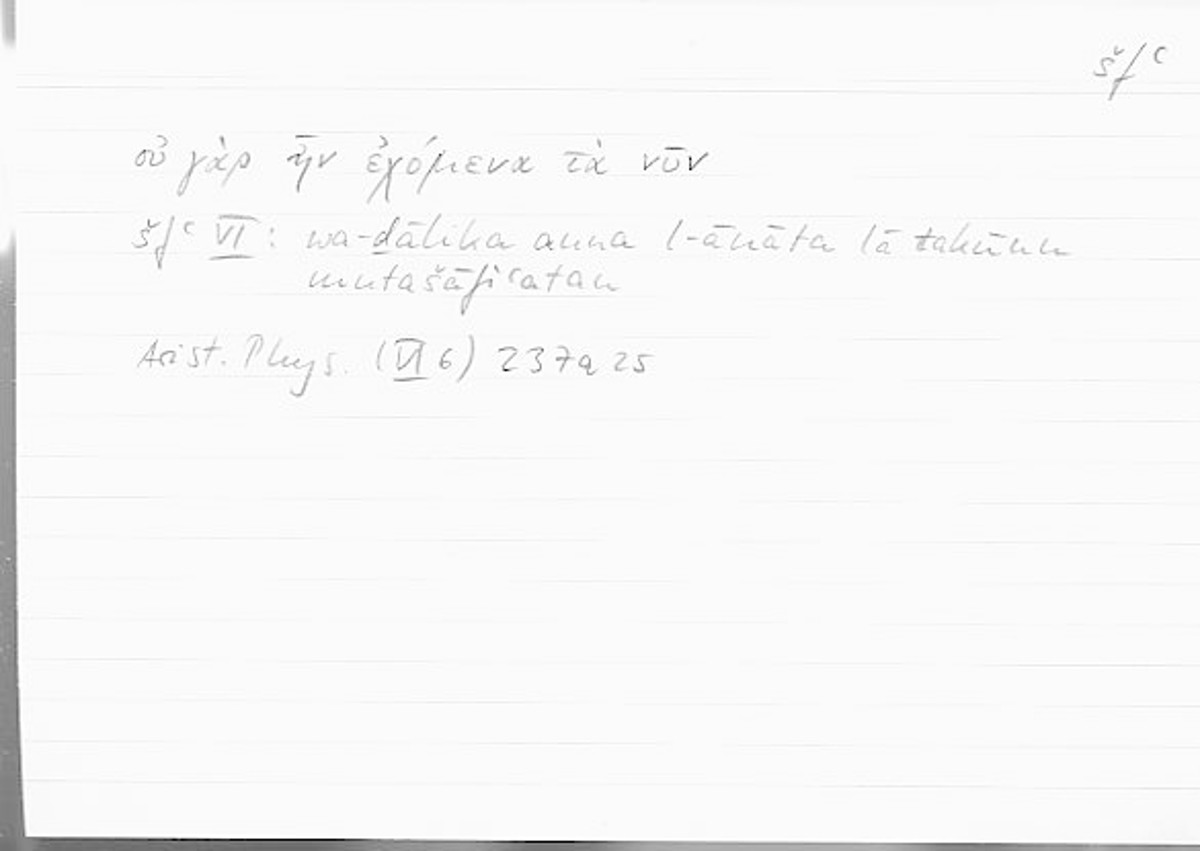 šfʿ
οὐ γὰρ ἦν ἐχόμενα τὰ νῦν
šfʿ VI: wa-ḏālika anna l-ānāta lā takūnu
mutašāfiʿatan
Arist. Phys. (VI 6) 237a 25